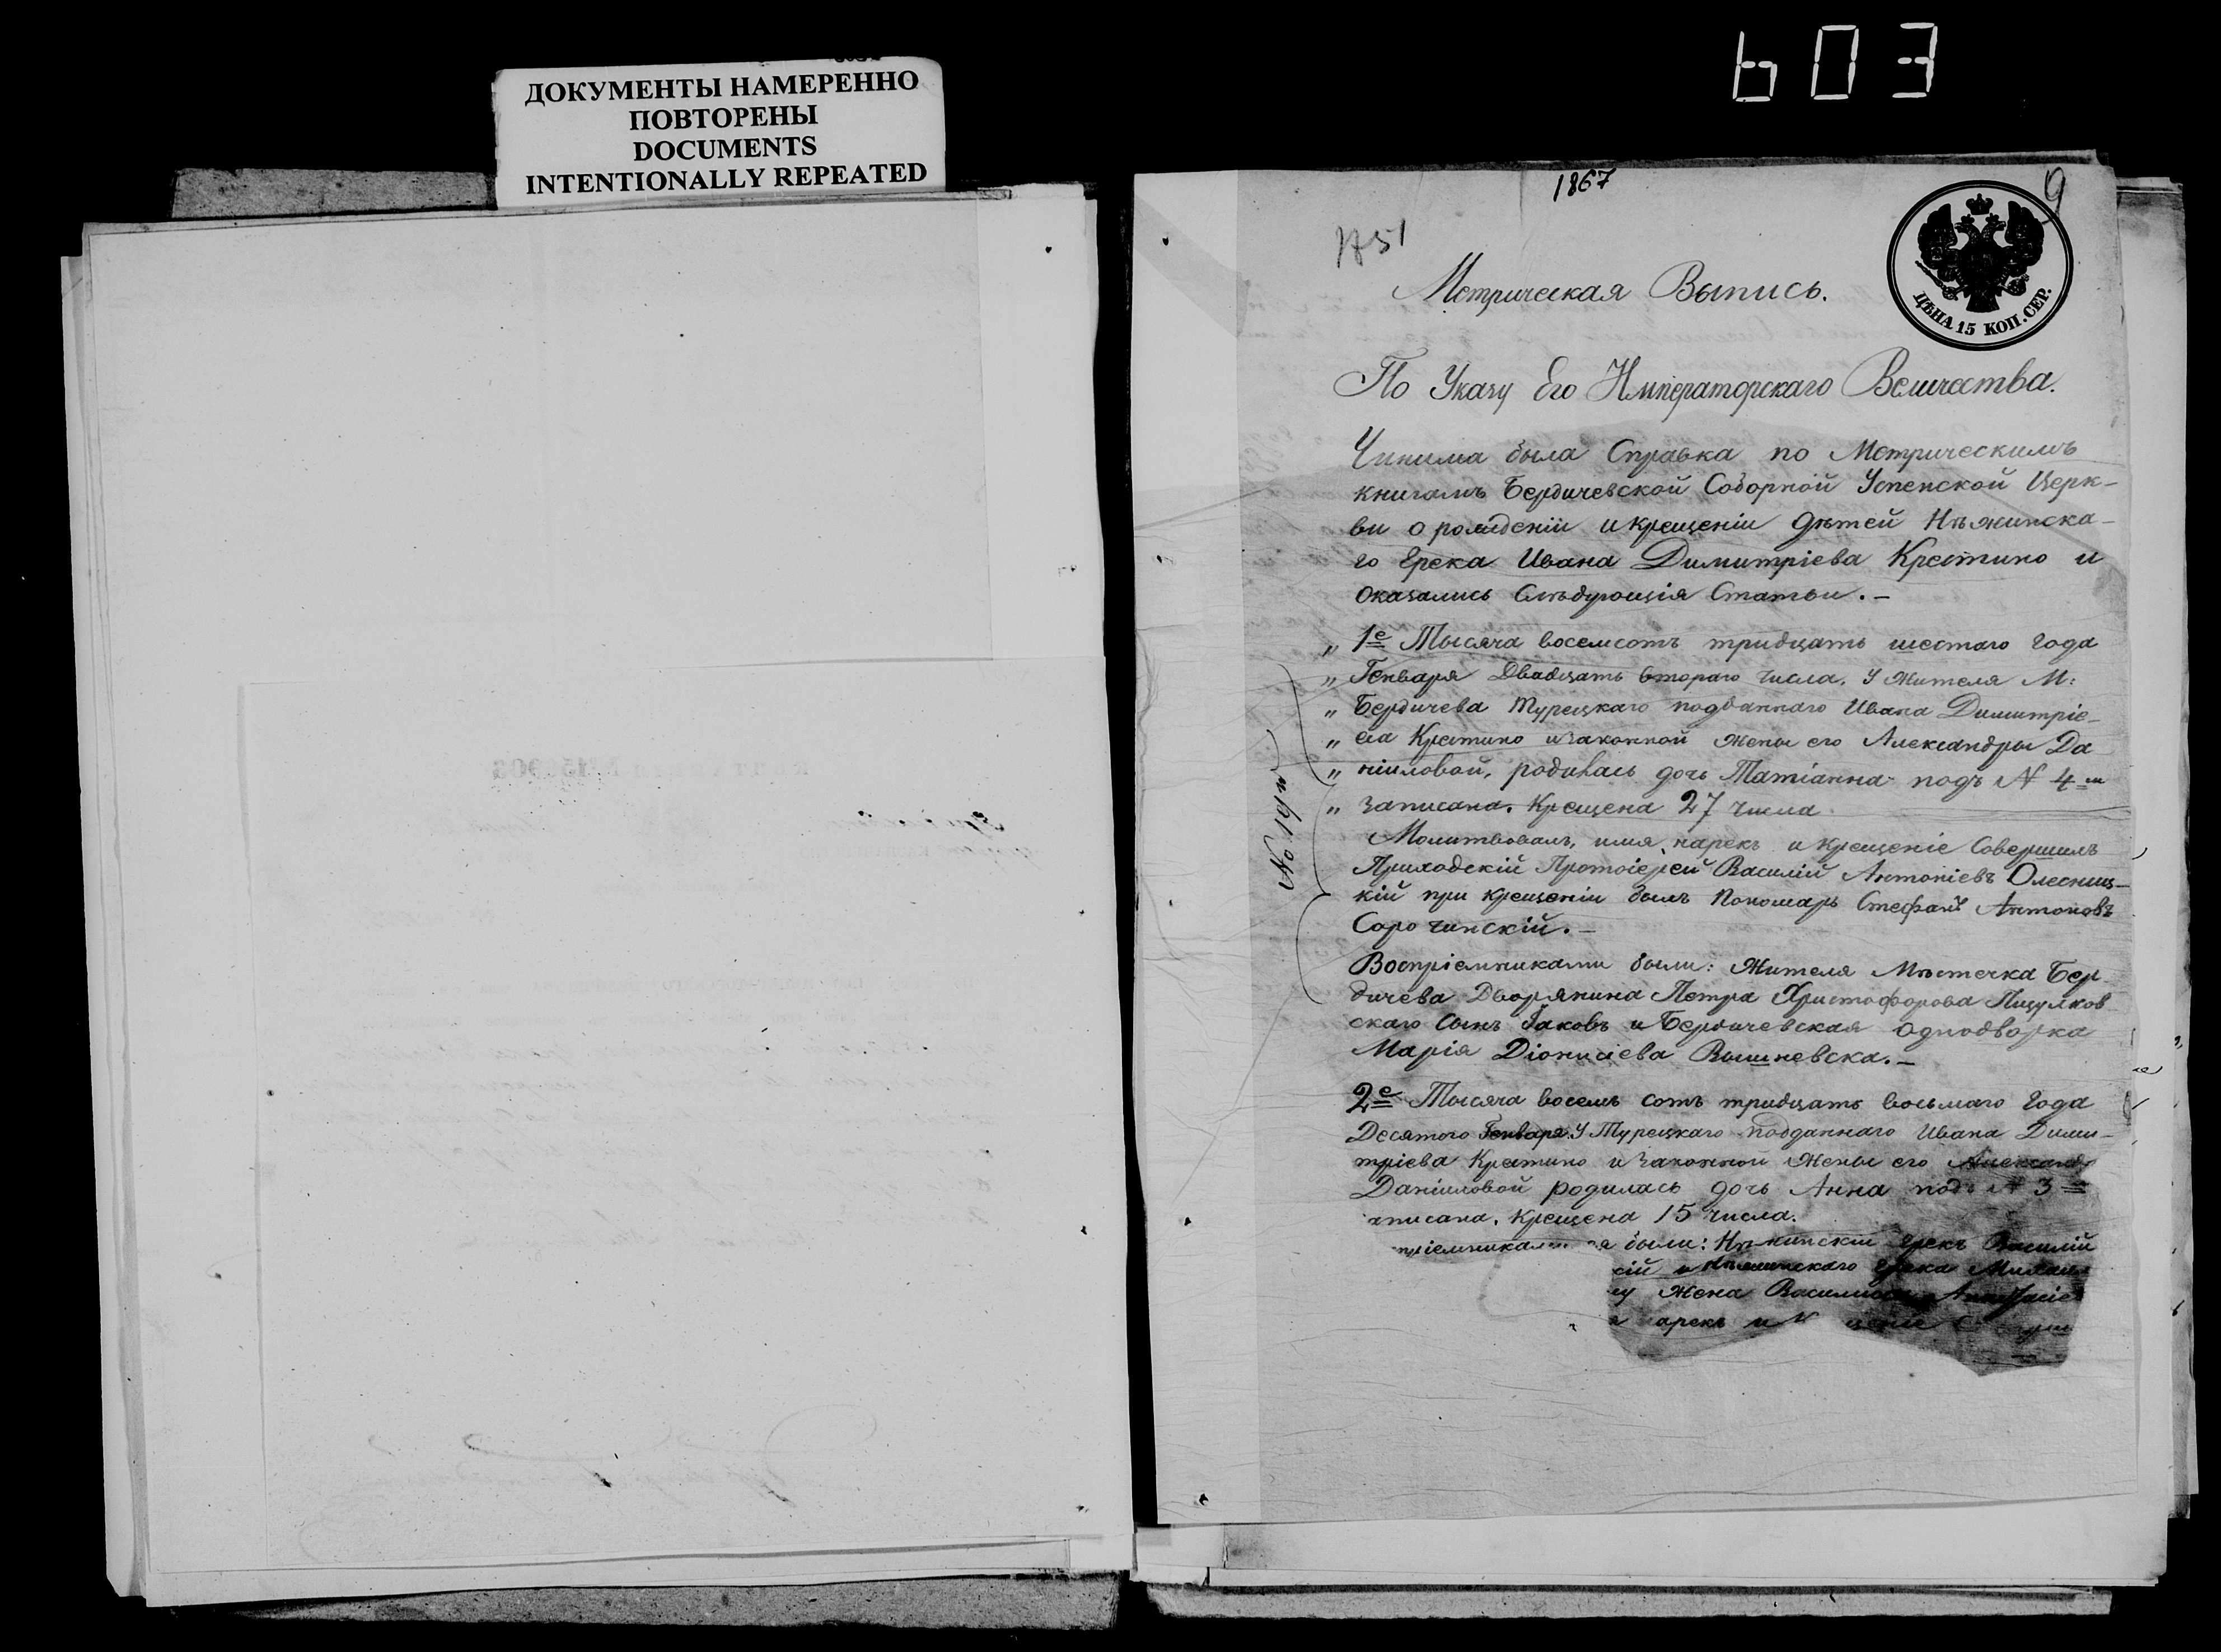 603
ДОКУМЕНТЫ НАМЕРЕННО
ПОВТОРЕНЫ
DOCUMENTS
INTENTIONALLY REPEATED
1867
9
ЦѢНА 15 КОП. СЕР.
Метрическая Выпись.
По Указу Его Императорскаго Величества.
Чинима была Справка по Метрическимъ
книгамъ Бердичевской Соборной Успенской Церк-
ви о рождении и крещении дѣтей Нѣжинска-
го Грека Ивана Димитріева Крестино и
оказались Слѣдующія Статьи.-
„ 1е Тысяча восемсотъ тридцать шестаго года
„ Генваря Двадцать втораго числа. У жителя М:
„ Бердичева Турецкаго подданнаго Ивана Димитріе-
„ ва Крестино и законной жены его Александры Да
„ ніиловой, родилась дочь Татіанна подъ N 4м
„ записана. Крещена 27 числа
Молитвовалъ, имя нарекъ и крещеніе Совершилъ
Приходскій Протоіерей Василій Антоніевъ Олесниц-
кій при крещеніи былъ Пономарь Стефанъ Антоновъ
Сорочинскій.-
No 19м
Воспріемниками были: Жителя Мѣстечка Бер
дичева Дворянина Петра Христофорова
скаго Сынъ Іаковъ и Бердичевская однодворка
Марія Діонисіева Вышневска.-
2е Тысяча восемь сотъ тридцать восьмаго Года
Десятого Генваря У Турецкаго подданнаго Ивана Дими-
тріева Крестино и Законной Жены его Александр
Даніиловой родилась дочь Анна подъ N 3
аписана. Крещена 15 числа.
были: Грекъ Василій
кій и Нѣжинскаго Грека
Жена
арекъ и